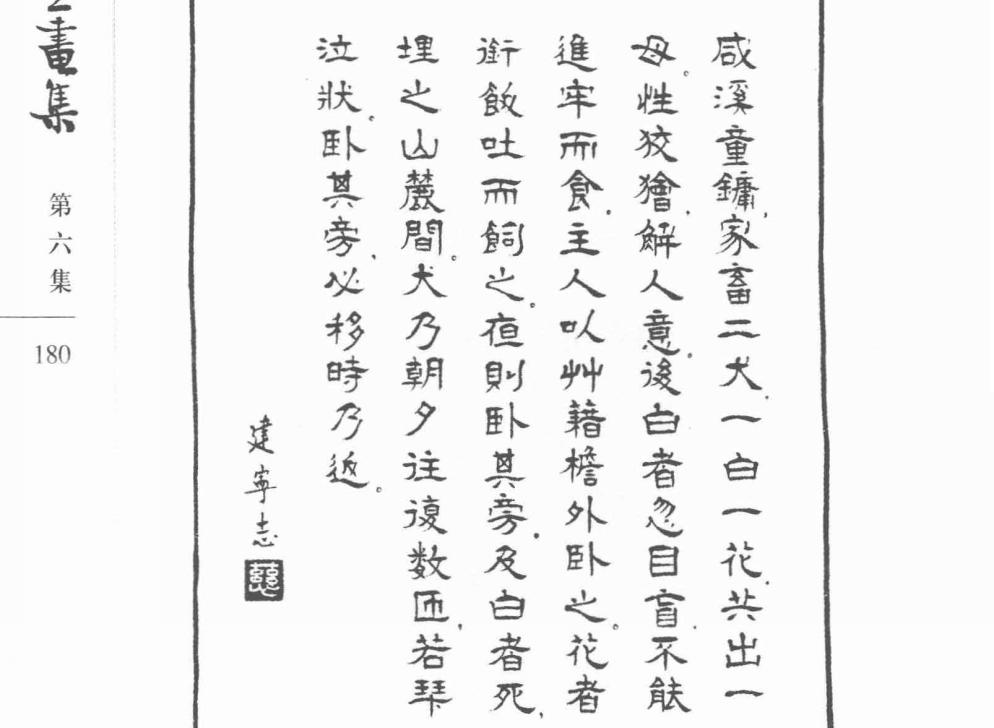 咸溪童鏞家畜二犬.一白一花.共出一
母。性狡獪.解人意.後白者忽目盲.不能
進牢而食.主人以艸藉檐外卧之。花者
銜飯吐而飼之。夜則卧其旁.及白者死,
埋之山麓間。犬乃朝夕往復数匝,若拜
泣狀。卧其旁,必移時乃返。
建寧志
畫集
第六集
180